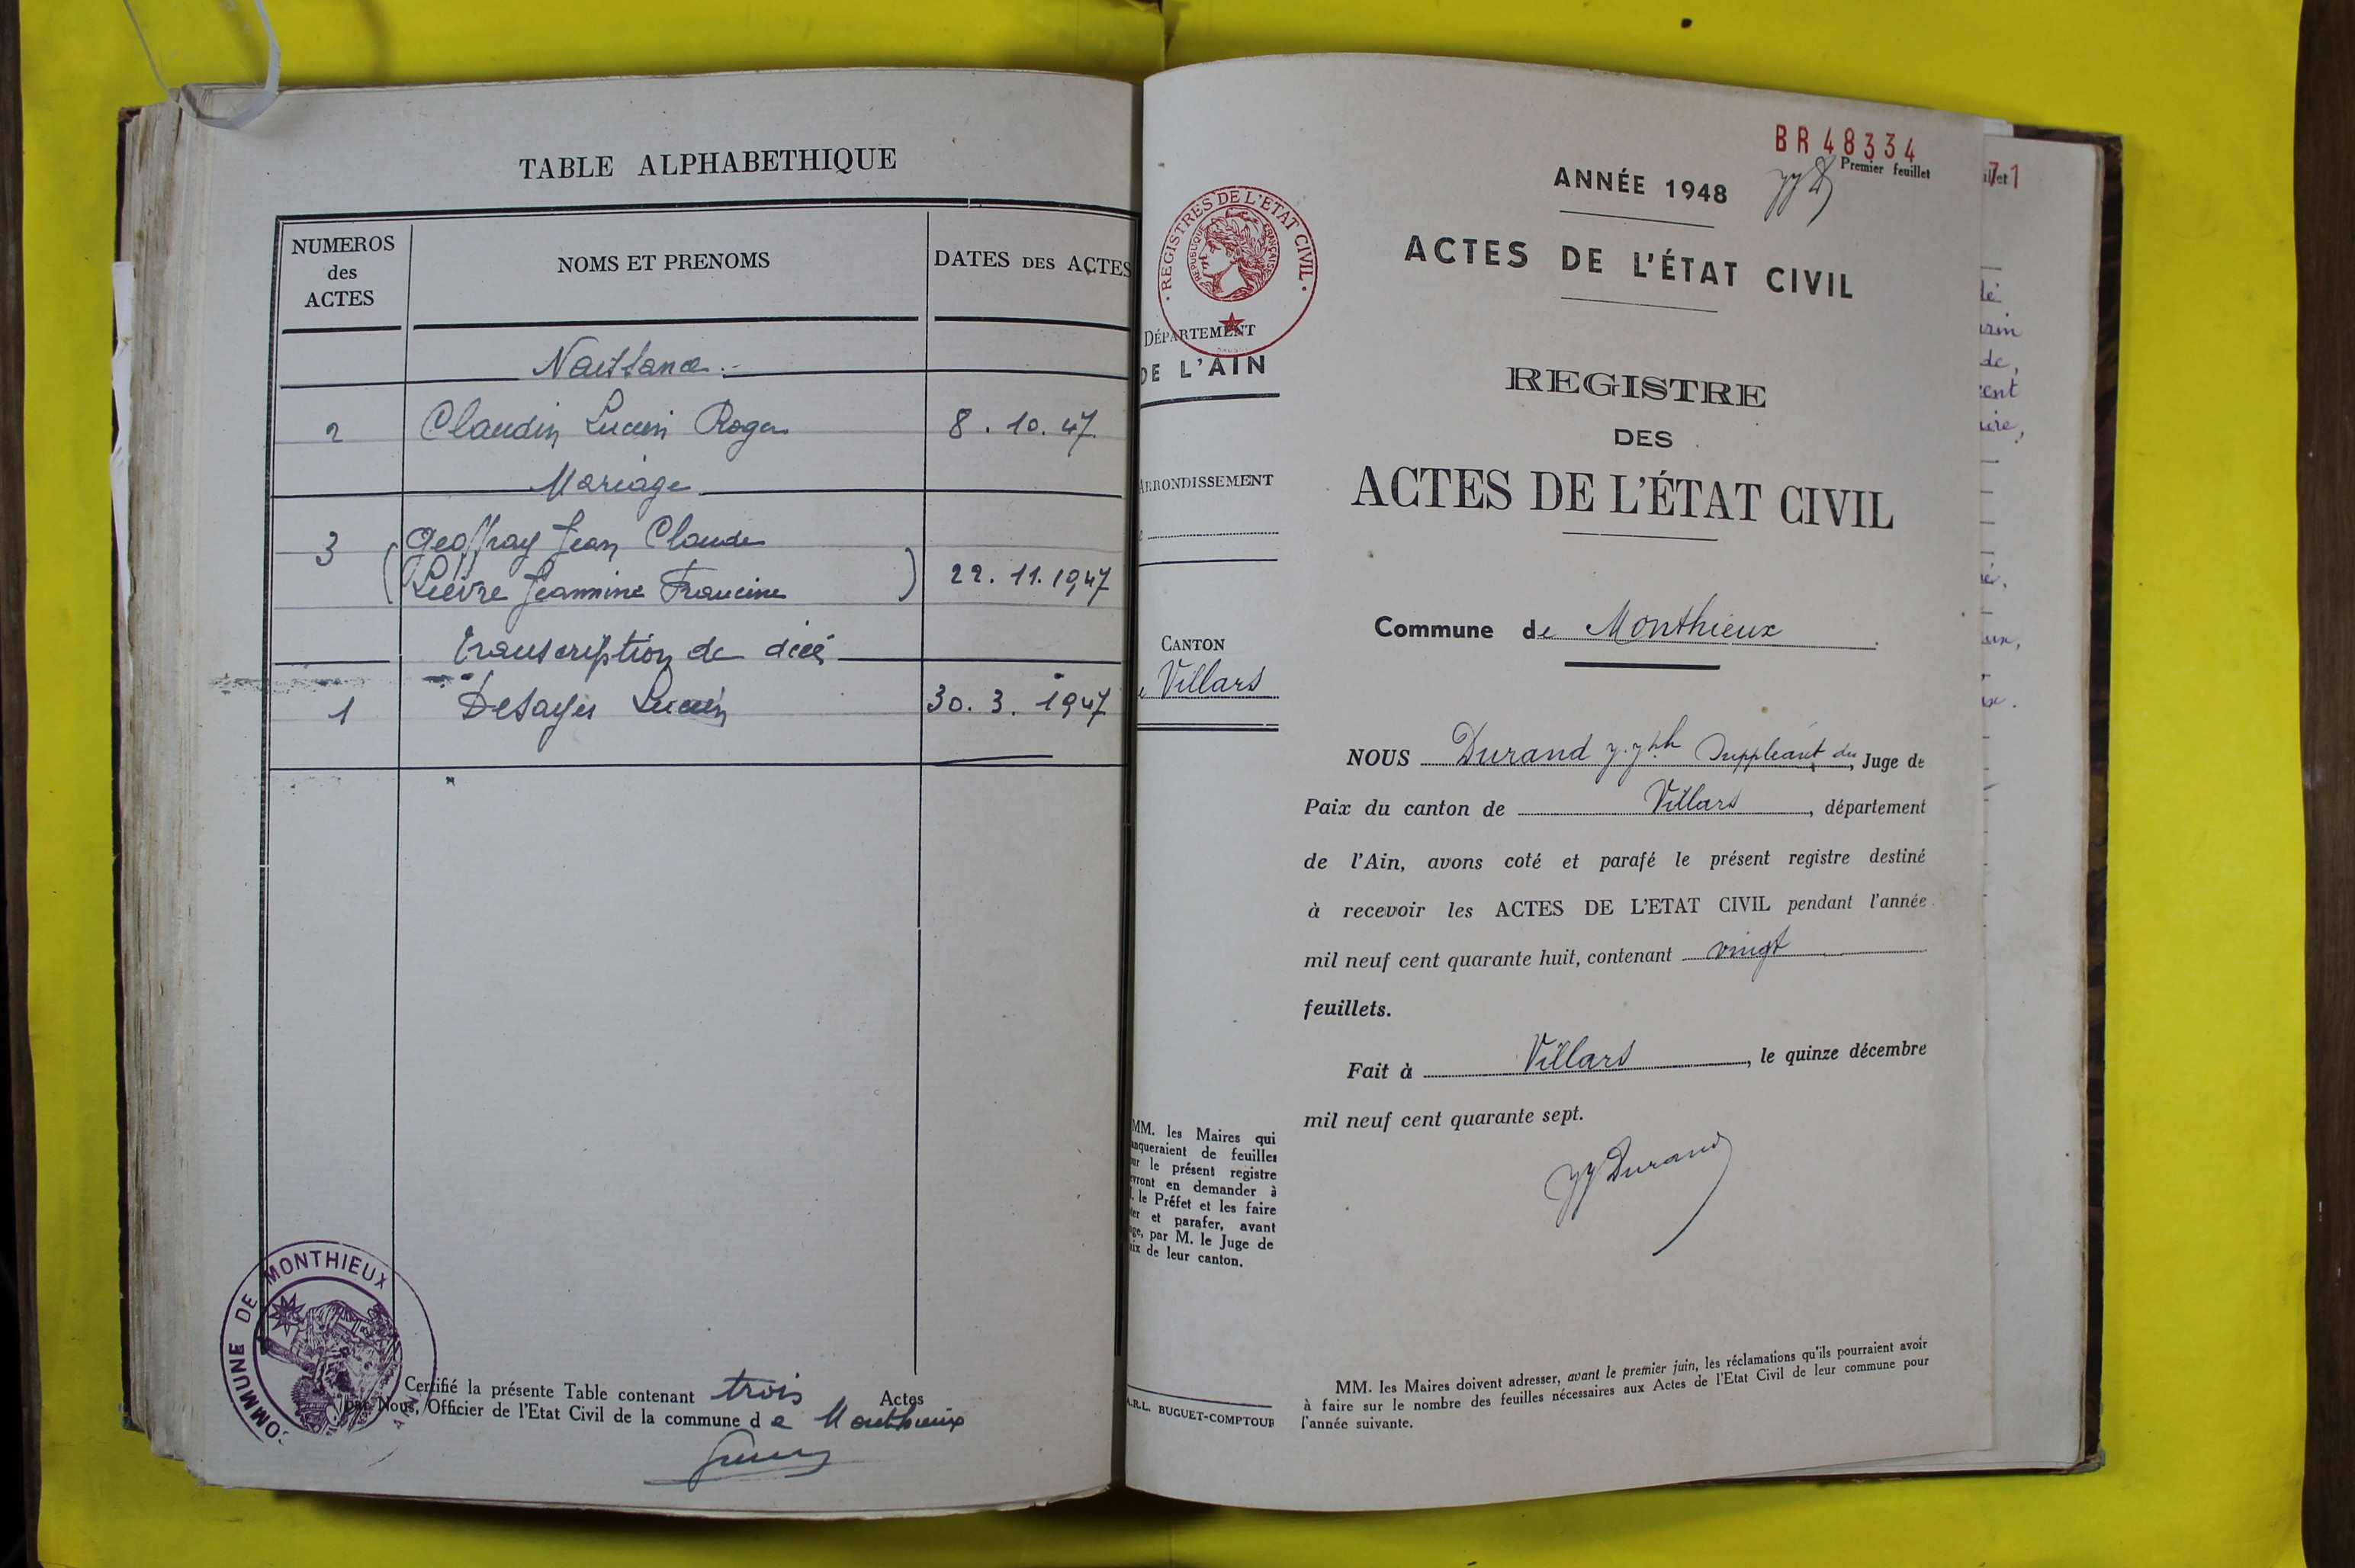 TABLE ALPHABETHIQUE
NUMEROS
des
ACTES
NOMS ET PRENOMS
DATES DES ACTES
Naissance.
2 Claudin Lucien Roger 8.10.47.
Mariage
3 Geoffray Jean Claude
Lièvre Jeannine Francine 22.11.1947
transcription de décès
1 Desayes Lucien 30.3.1947
COMMUNE DE MONTHIEUX
AIN
Certifié la présente Table contenant trois Actes
par Nous, Officier de l'Etat Civil de la commune de Monthieux
BR48334
Premier feuillet
ANNÉE 1948
ACTES DE L'ÉTAT CIVIL
REGISTRES DE L'ETAT CIVIL
REPUBLIQUE FRANÇAISE
DÉPARTEMENT
DE L'AIN
ARRONDISSEMENT
CANTON
Villars
MM. les Maires qui
manqueraient de feuilles
le présent registre
en demander à
le Préfet et les faire
et parafer, avant
par M. le Juge de
de leur canton.
A.R.L. BUGUET-COMPTOUR
REGISTRE
DES
ACTES DE L'ÉTAT CIVIL
Commune de Monthieux
NOUS Durand J. Jph Suppléant du Juge de
Paix du canton de Villars, département
de l'Ain, avons coté et parafé le présent registre destiné
à recevoir les ACTES DE L'ETAT CIVIL pendant l'année
mil neuf cent quarante huit, contenant vingt
feuillets.
Fait à Villars, le quinze décembre
mil neuf cent quarante sept.
JJ Durand
MM. les Maires doivent adresser, avant le premier juin, les réclamations qu'ils pourraient avoir
à faire sur le nombre des feuilles nécessaires aux Actes de l'Etat Civil de leur commune pour
l'année suivante.
71